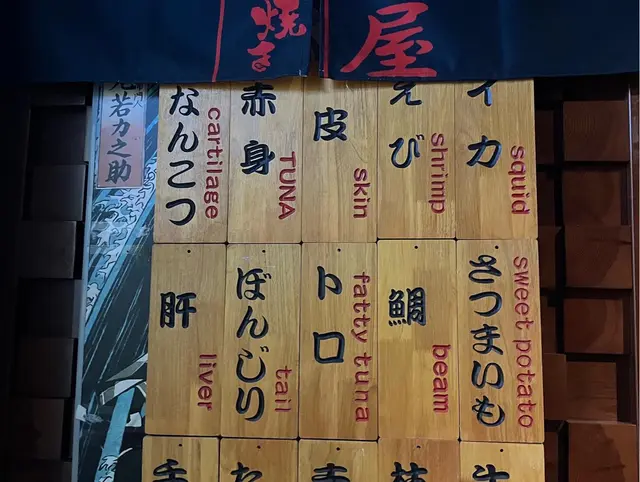 焼き
屋
イカ
squid
えび
shrimp
皮
skin
赤身
TUNA
なんこつ
cartilage
さつまいも
sweet potato
鯛
beam
トロ
fatty tuna
ぼんじり
tail
肝
liver
若力之助